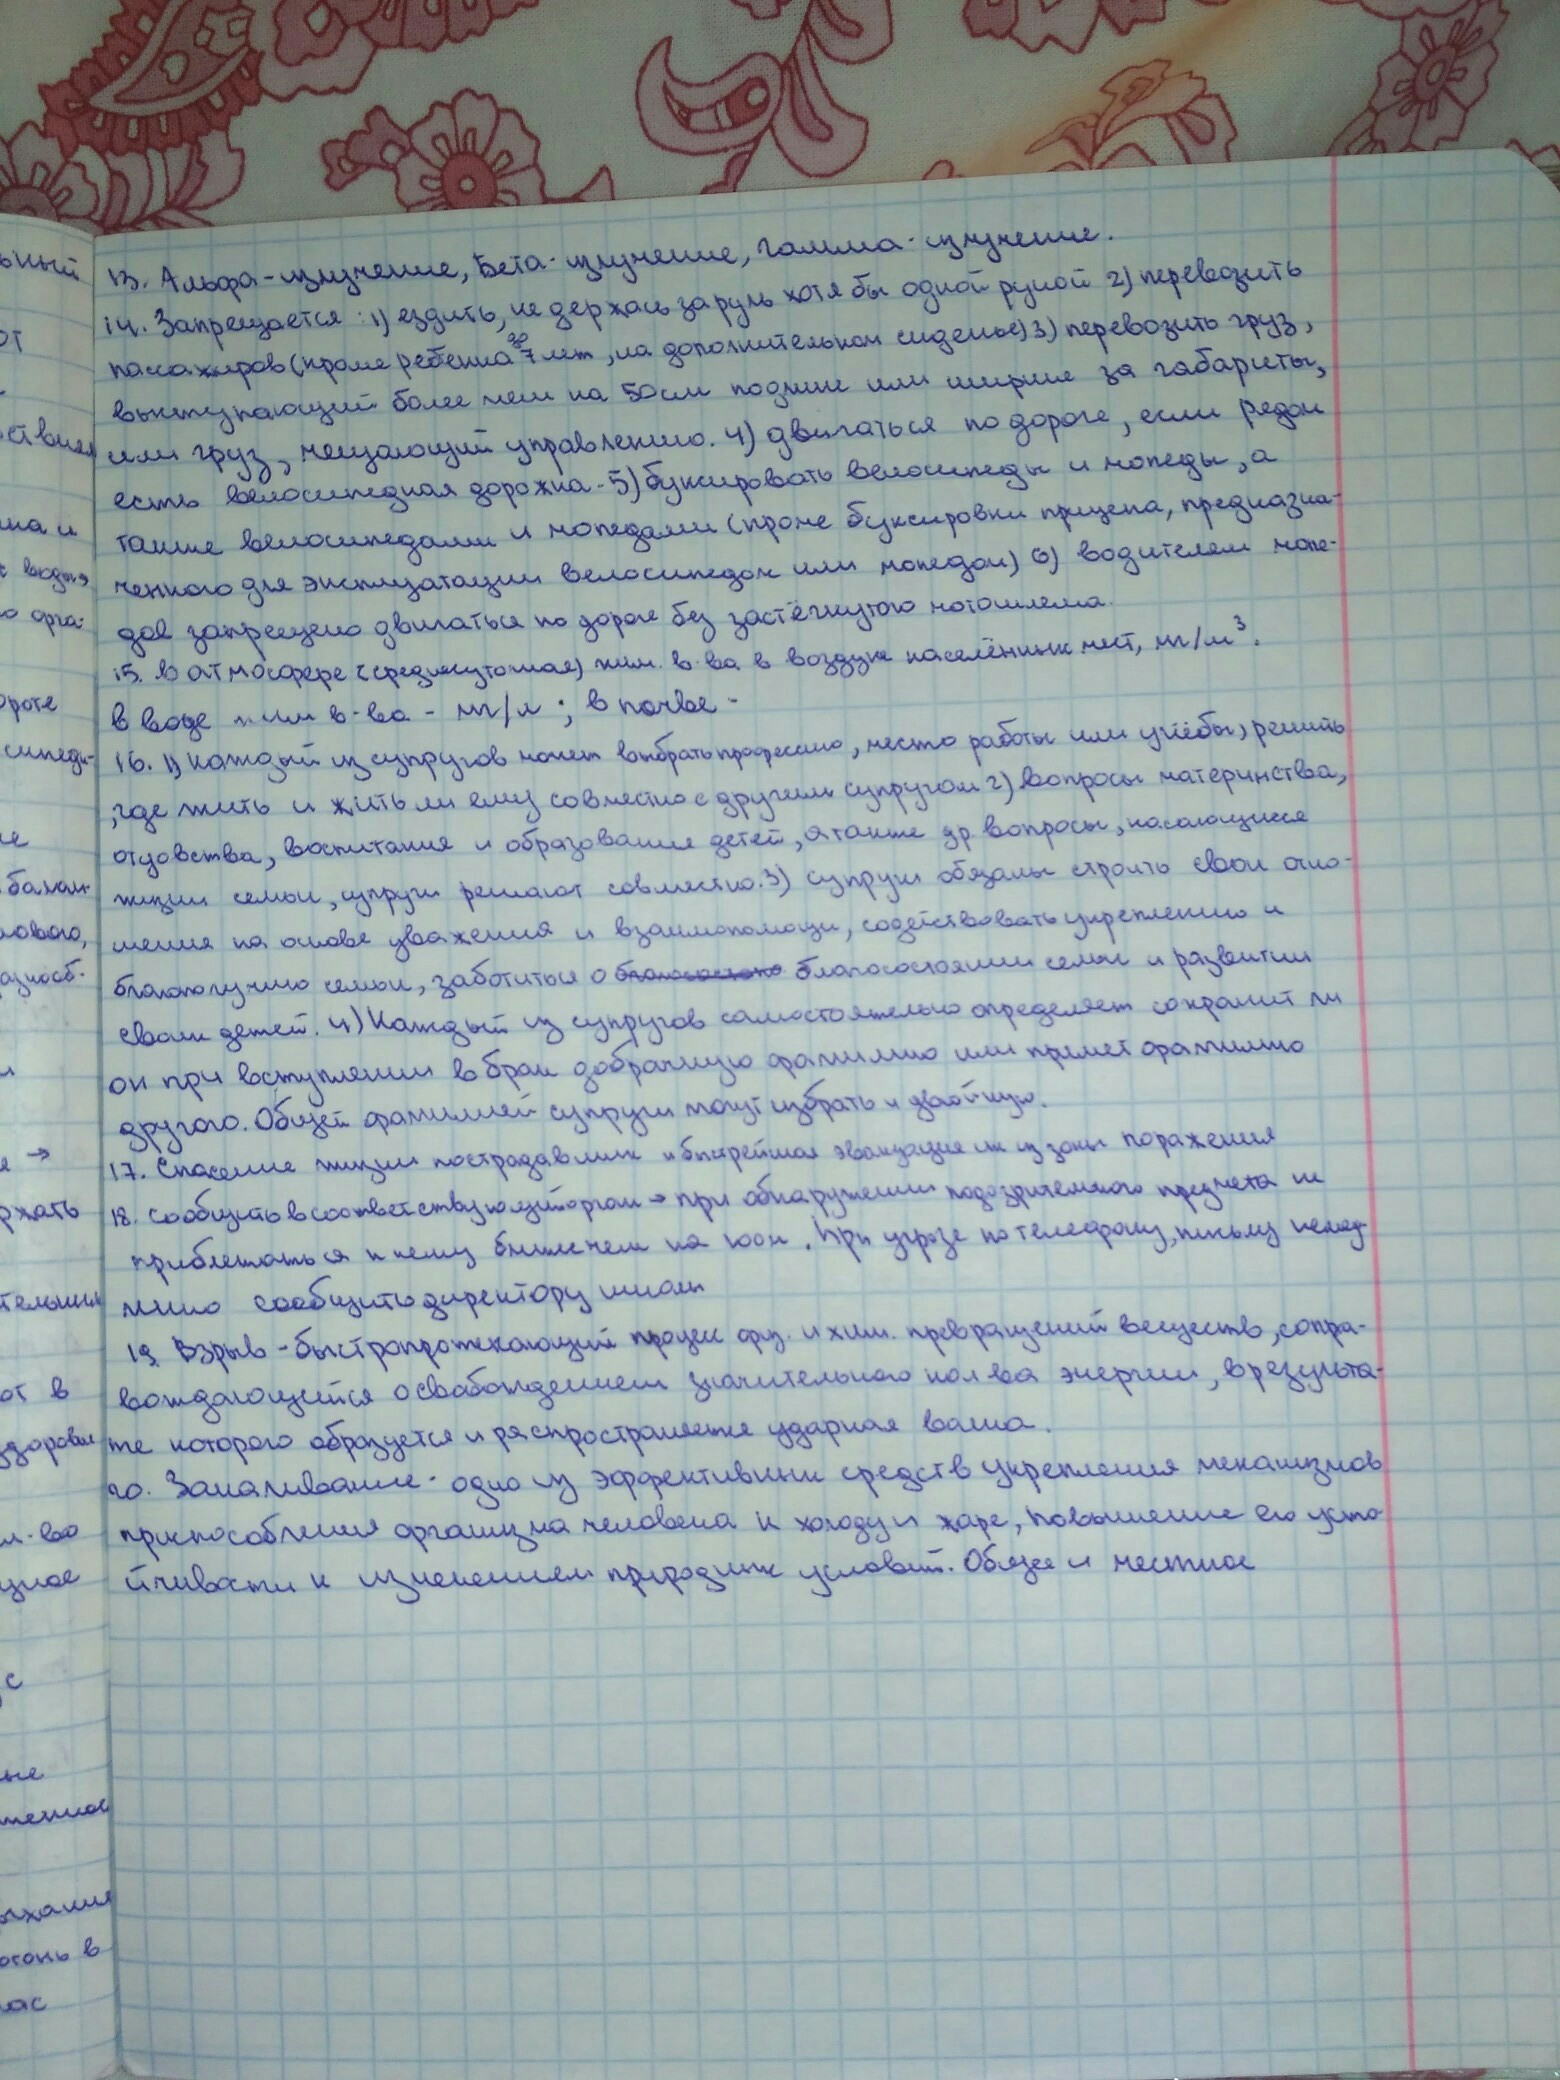 13. Альфа-излучение, Бета-излучение, Гамма-излучение.
14. Запрещается: 1) ездить, не держась за руль хотя бы одной рукой 2) перевозить
пассажиров (кроме ребенка до 7 лет, на дополнительном сиденье) 3) перевозить груз,
выступающий более чем на 50 см по длине или ширине за габариты,
или груз, мешающий управлению. 4) двигаться по дороге, если рядом
есть велосипедная дорожка. 5) буксировать велосипеды и мопеды, а
также велосипедами и мопедами (кроме буксировки прицепа, предназна-
ченного для эксплуатации велосипедом или мопедом) 6) водителем мопе-
дов запрещено двигаться по дороге без застёгнутого мотошлема.
15. В атмосфере (среднесуточная) хим. в-ва в воздухе населённых мест, мг/м³.
в воде хим в-ва - мг/л; в почве -
16. 1) каждый из супругов может выбрать профессию, место работы или учёбы, решить
, где жить и жить ли ему совместно с другим супругом 2) вопросы материнства,
отцовства, воспитания и образования детей, а также др вопросы, касающиеся
жизни семьи, супруги решают совместно. 3) супруги обязаны строить свои отно-
шения на основе уважения и взаимопомощи, содействовать укреплению и
благополучию семьи, заботиться о благосостоянии семьи и развитии
своих детей. 4) Каждый из супругов самостоятельно определяет сохранит ли
он при вступлении в брак добрачную фамилию или примет фамилию
другого. Общей фамилией супруги могут избрать и двойную.
17. Спасение жизни пострадавших и быстрейшая эвакуация их из зоны поражения
18. сообщить в соответствующий орган → при обнаружении подозрительного предмета не
приближаться к нему ближе чем на 100м. При угрозе по телефону, письму немед-
ленно сообщить директору школы
19. Взрыв - быстропротекающий процесс физ. и хим. превращений веществ, сопра-
вождающийся освабождением значительного кол ва энергии, в результа-
те которого образуется и распространяется ударная волна.
20. Закаливание - одно из эффективных средств укрепления механизмов
приспособления организма человека к холоду и жаре, повышение его усто-
йчивости к изменениям природных условий. Общее и местное